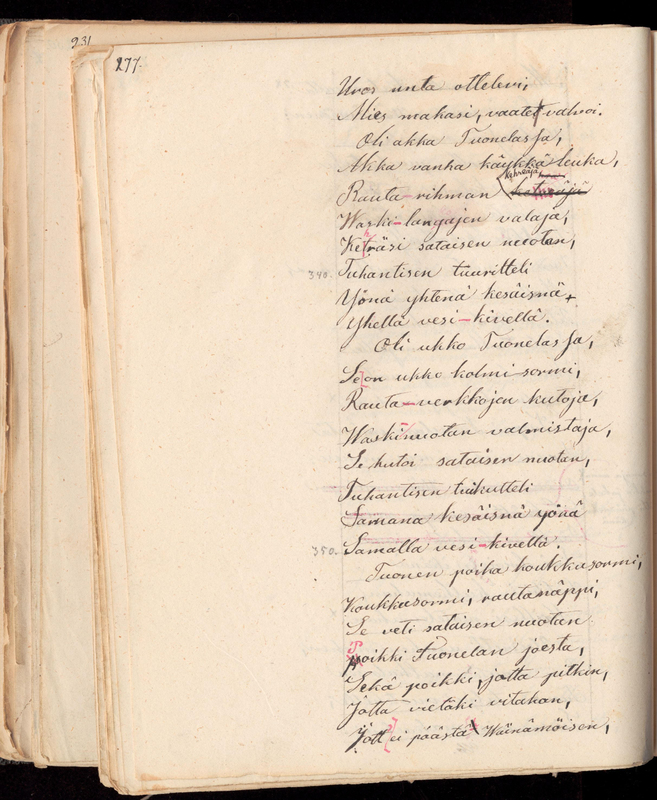 231
277.
Uros unta ottelevi,
Mies makasi, vaatet valvoi.
Oli akka Tuonelassa,
Akka vanha käykkä leuka,
Rauta-rihman Kehreäjä
Waski-langajen valaja,
Kehräsi sataisen nuotan,
340. Tuhantisen tuuritteli
Yönä yhtenä kesäisnä,
Yhellä vesi-kivellä.
Oli ukko Tuonelassa,
Se on ukko kolmi-sormi,
Rauta-verkkojen kutoja,
Waski-nuotan valmistaja,
Se kutoi sataisen nuotan,
Tuhantisen tuikutteli
Samana kesäisnä yönä
350. Samalla vesi-kivellä.
Tuonen poika koukkusormi,
Koukkusormi, rautanäppi,
Se veti sataisen nuotan
Poikki Tuonelan joesta,
Sekä poikki, jotta pitkin,
Jotta vietäki vitahan,
Jott ei päästä Wäinämöisen,